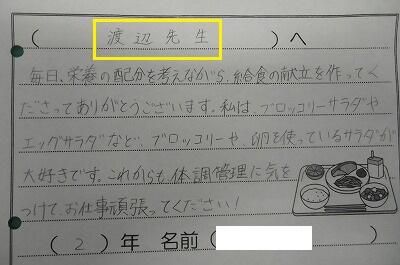 ( 渡辺先生 )へ
毎日、栄養の配分を考えながら、給食の献立を作ってく
ださってありがとうございます。私は、ブロッコリーサラダや
エッグサラダなど、ブロッコリーや、卵を使っているサラダが
大好きです。これからも、体調管理に気を
つけて、お仕事頑張ってください!
( 2 )年 名前( )